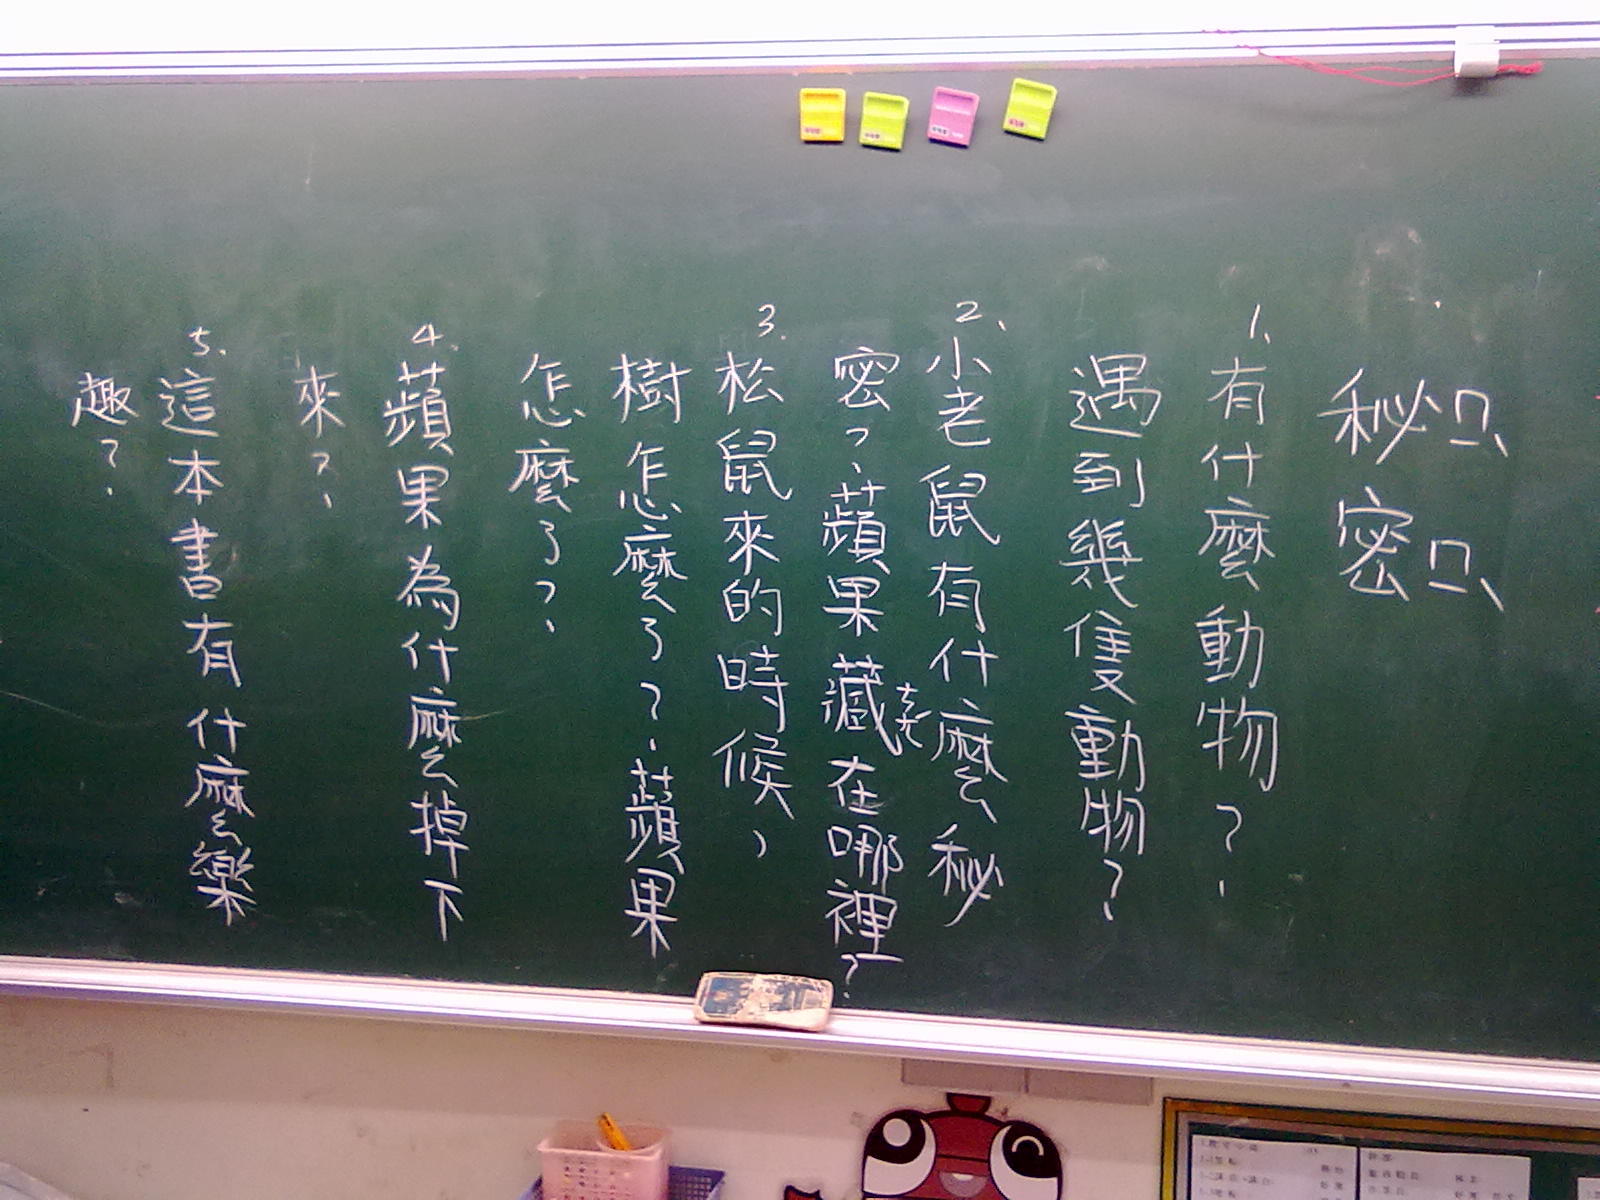 秘ㄇㄧˋ密ㄇㄧˋ
1、有什麼動物？
遇到幾隻動物？
2、小老鼠有什麼秘
密？蘋果藏在哪裡？
3.松鼠來的時候，
樹怎麼了？蘋果
怎麼了？
4.蘋果為什麼掉下
來？
5.這本書有什麼樂
趣？